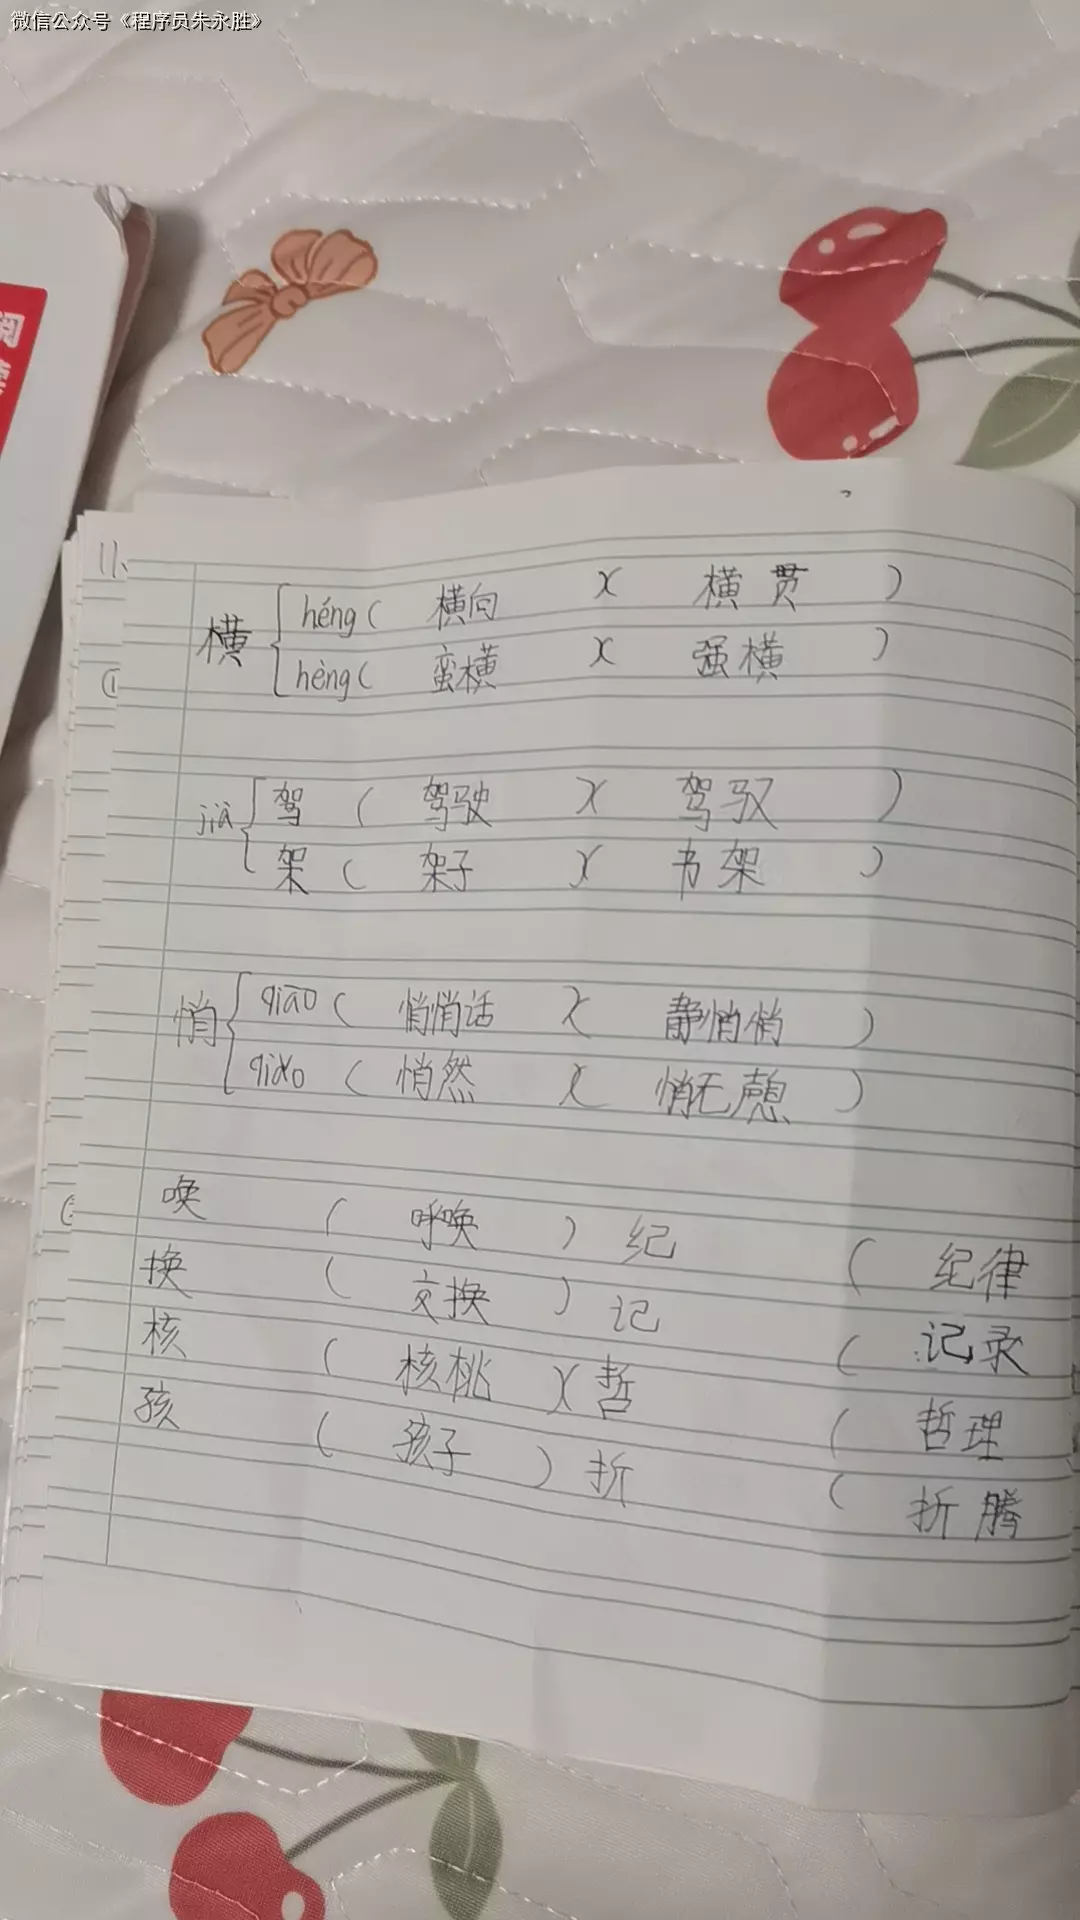 微信公众号《程序员朱永胜》
11、
横 héng( 横向 )( 横贯 )
hèng( 蛮横 )( 强横 )
jià 驾 ( 驾驶 )( 驾驭 )
架 ( 架子 )( 书架 )
悄 qiāo ( 悄悄话 )( 静悄悄 )
qiǎo ( 悄然 )( 悄无声息 )
唤 ( 呼唤 ) 纪 ( 纪律
换 ( 交换 ) 记 ( 记录
核 ( 核桃 )( 哲 ( 哲理
孩 ( 孩子 ) 折 ( 折腾